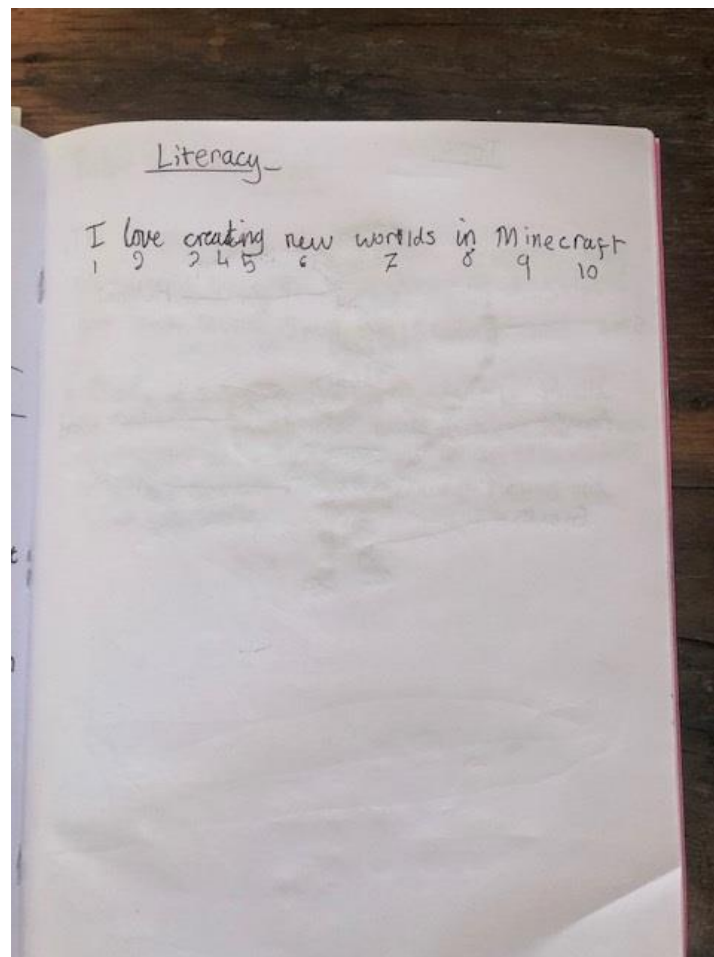 Literacy
I love creating new worlds in Minecraft
1 2 3 4 5 6 7 8 9 10